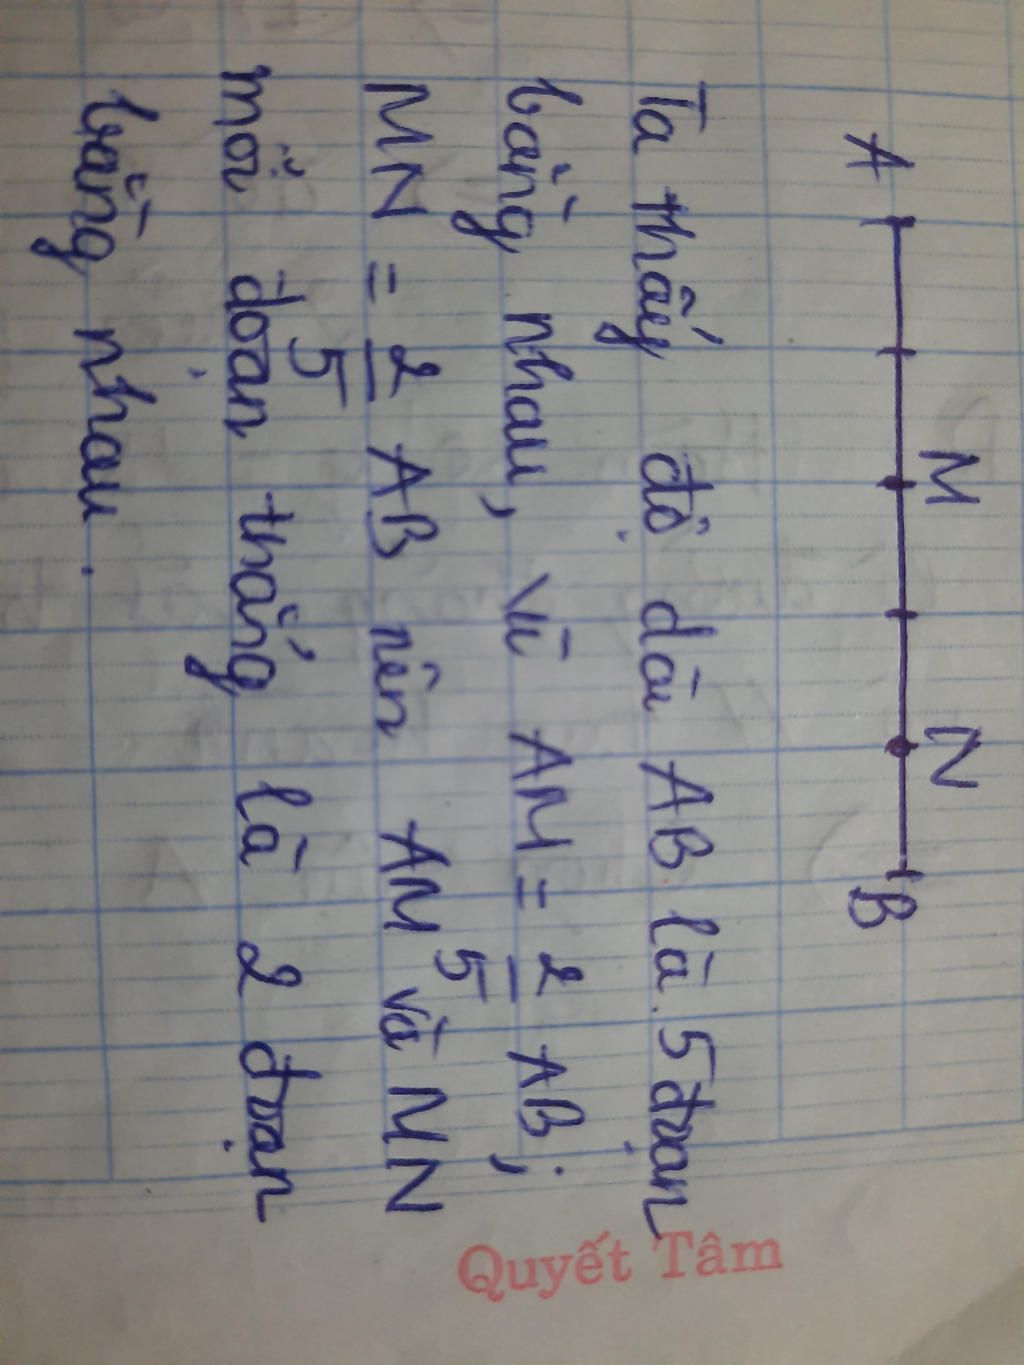 A M N B
Ta thấy độ dài AB là 5 đoạn
bằng nhau, vì AM = 2/5 AB;
MN = 2/5 AB nên AM và MN
mỗi đoạn thẳng là 2 đoạn
bằng nhau.
Quyết Tâm